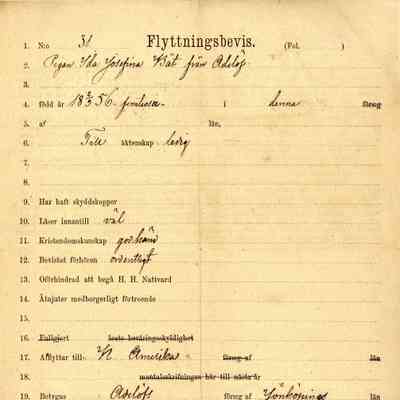 1. N:o 31 Flyttningsbevis. (Fol. )
2. Pigan Ida Josefina Kät från Adelöf
3.
4. född år 18 3/5 56. i denna försg
5. af län,
6. Till äktenskap ledig
7.
8.
9. Har haft skyddskoppor
10. Läser innantill väl
11. Kristendomskunskap godkänd
12. Bevistat förhören ordentligt
13. Oförhindrad att begå H. H. Nattvard
14. Åtnjuter medborgerligt förtroende
15.
16. Fullgjort årets beväringsskyldighet
17. Afflyttar till N. Amerika försg af län
18. mantalsskrifningen här till nästa år
19. Betygas Adelöfs försg af Jönköpings